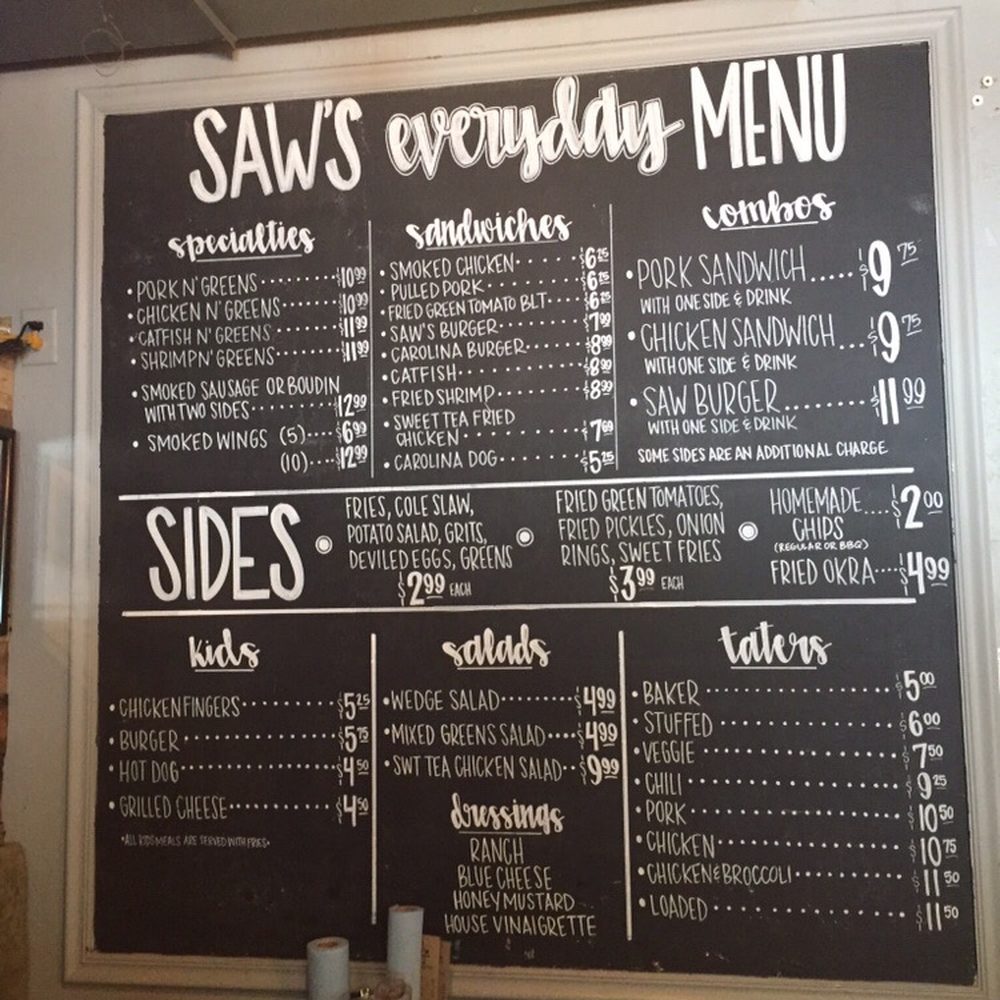 SAW'S everyday MENU
specialties
• PORK N' GREENS ······ $10.99
• CHICKEN N' GREENS ······ $10.99
• CATFISH N' GREENS ······ $11.99
• SHRIMP N' GREENS ······ $11.99
• SMOKED SAUSAGE OR BOUDIN
WITH TWO SIDES ······ $12.99
• SMOKED WINGS (5) ···· $6.99
(10) ···· $12.99
sandwiches
• SMOKED CHICKEN ······ $6.25
• PULLED PORK ······ $6.25
• FRIED GREEN TOMATO BLT ···· $6.25
• SAW'S BURGER ······ $7.99
• CAROLINA BURGER ······ $8.99
• CATFISH ······ $8.99
• FRIED SHRIMP ······ $8.99
• SWEET TEA FRIED
CHICKEN ······ $7.69
• CAROLINA DOG ······ $5.25
combos
• PORK SANDWICH ..... $9.75
WITH ONE SIDE & DRINK
• CHICKEN SANDWICH ... $9.75
WITH ONE SIDE & DRINK
• SAW BURGER ........ $11.99
WITH ONE SIDE & DRINK
SOME SIDES ARE AN ADDITIONAL CHARGE
SIDES
FRIES, COLE SLAW,
POTATO SALAD, GRITS,
DEVILED EGGS, GREENS
$2.99 EACH
FRIED GREEN TOMATOES,
FRIED PICKLES, ONION
RINGS, SWEET FRIES
$3.99 EACH
HOMEMADE .... $2.00
CHIPS
(REGULAR OR BBQ)
FRIED OKRA ···· $4.99
kids
• CHICKEN FINGERS ······ $5.25
• BURGER ······ $5.75
• HOT DOG ······ $4.50
• GRILLED CHEESE ······ $4.50
*ALL KIDS MEALS ARE SERVED WITH FRIES*
salads
• WEDGE SALAD ······ $4.99
• MIXED GREENS SALAD ···· $4.99
• SWT TEA CHICKEN SALAD ·· $9.99
dressings
RANCH
BLUE CHEESE
HONEY MUSTARD
HOUSE VINAIGRETTE
taters
• BAKER ······ $5.00
• STUFFED ······ $6.00
• VEGGIE ······ $7.50
• CHILI ······ $9.25
• PORK ······ $10.50
• CHICKEN ······ $10.75
• CHICKEN & BROCCOLI ······ $11.50
• LOADED ······ $11.50